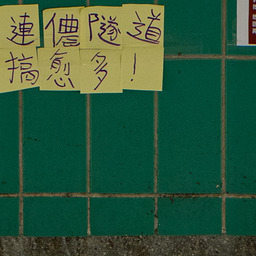 連儂隧道
搞愈多！